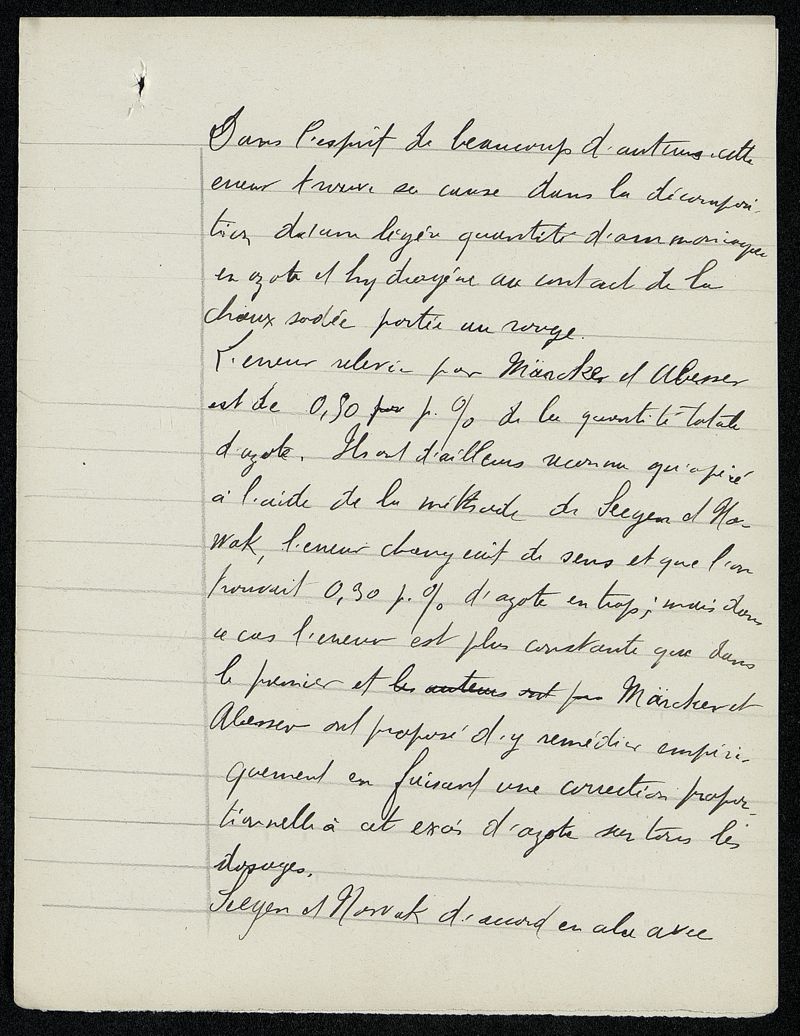 Dans l'esprit de beaucoup d'auteurs cette
erreur trouve sa cause dans la décomposi-
tion d'une légère quantité d'ammoniaque
en azote et hydrogène au contact de la
chaux sodée portée au rouge.
L'erreur relevée par Märcker et Abesser
est de 0,90 par p. % de la quantité totale
d'azote. Ils ont d'ailleurs reconnu qu'opéré
à l'aide de la méthode de Seegen et No-
wak, l'erreur changeait de sens et que l'on
trouvait 0,30 p. % d'azote en trop; mais dans
ce cas l'erreur est plus constante que dans
le premier et les auteurs ont Märcker et
Abesser ont proposé d'y remédier empiri-
quement en faisant une correction propor-
tionnelle à cet excès d'azote sur tous les
dosages.
Seegen et Nowak d'accord en cela avec